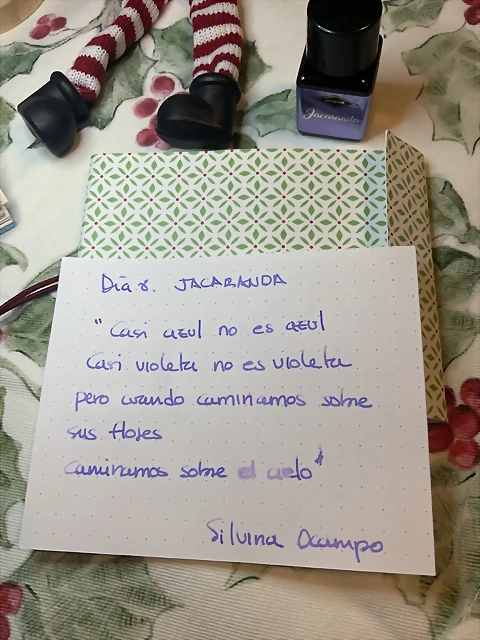 Jacaranda
Día 8. JACARANDA
"Casi azul no es azul
Casi violeta no es violeta
pero cuando caminamos sobre
sus flores
caminamos sobre el cielo"
Silvina Ocampo